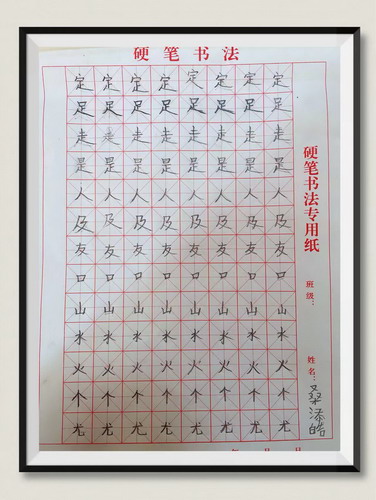 硬笔书法
定定定定定定定定
足足足足足足足足
走走走走走走走走
是是是是是是是是
人人人人人人人人
及及及及及及及及
友友友友友友友友
口口口口口口口口
山山山山山山山山
水水水水水水水水
火火火火火火火火
个个个个个个个个
尤尤尤尤尤尤尤尤
硬笔书法专用纸
班级：
姓名：桑添皓